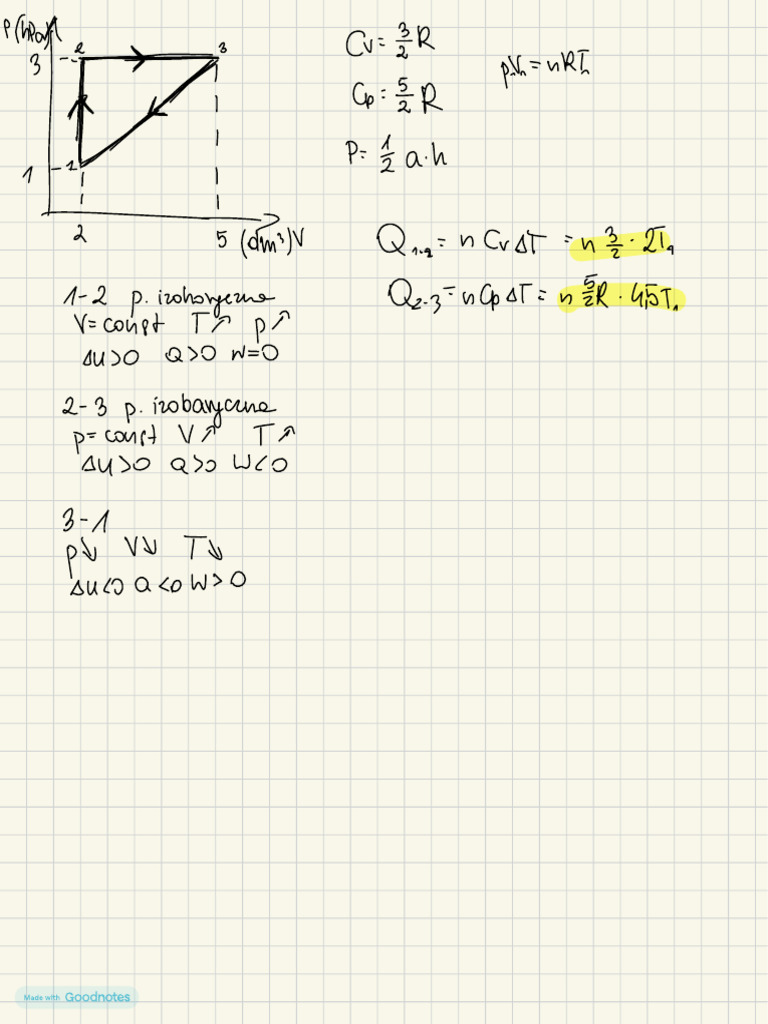 p(hPa)
2 3
3
1 1
2 5 (dm³) V
Cv = 3/2 R
pₙVₙ = nRTₙ
Cp = 5/2 R
P = 1/2 a·h
Q₁₋₂ = n Cv ΔT = n 3/2 · 2T₁
Q₂₋₃ = n Cp ΔT = n 5/2 R · 4,5T₁
1-2 p. izohoryczna
V = const T↗ p↗
ΔU>0 Q>0 W=0
2-3 p. izobaryczna
p = const V↗ T↗
ΔU>0 Q>0 W<0
3-1
p↘ V↘ T↘
ΔU<0 Q<0 W>0
Made with Goodnotes